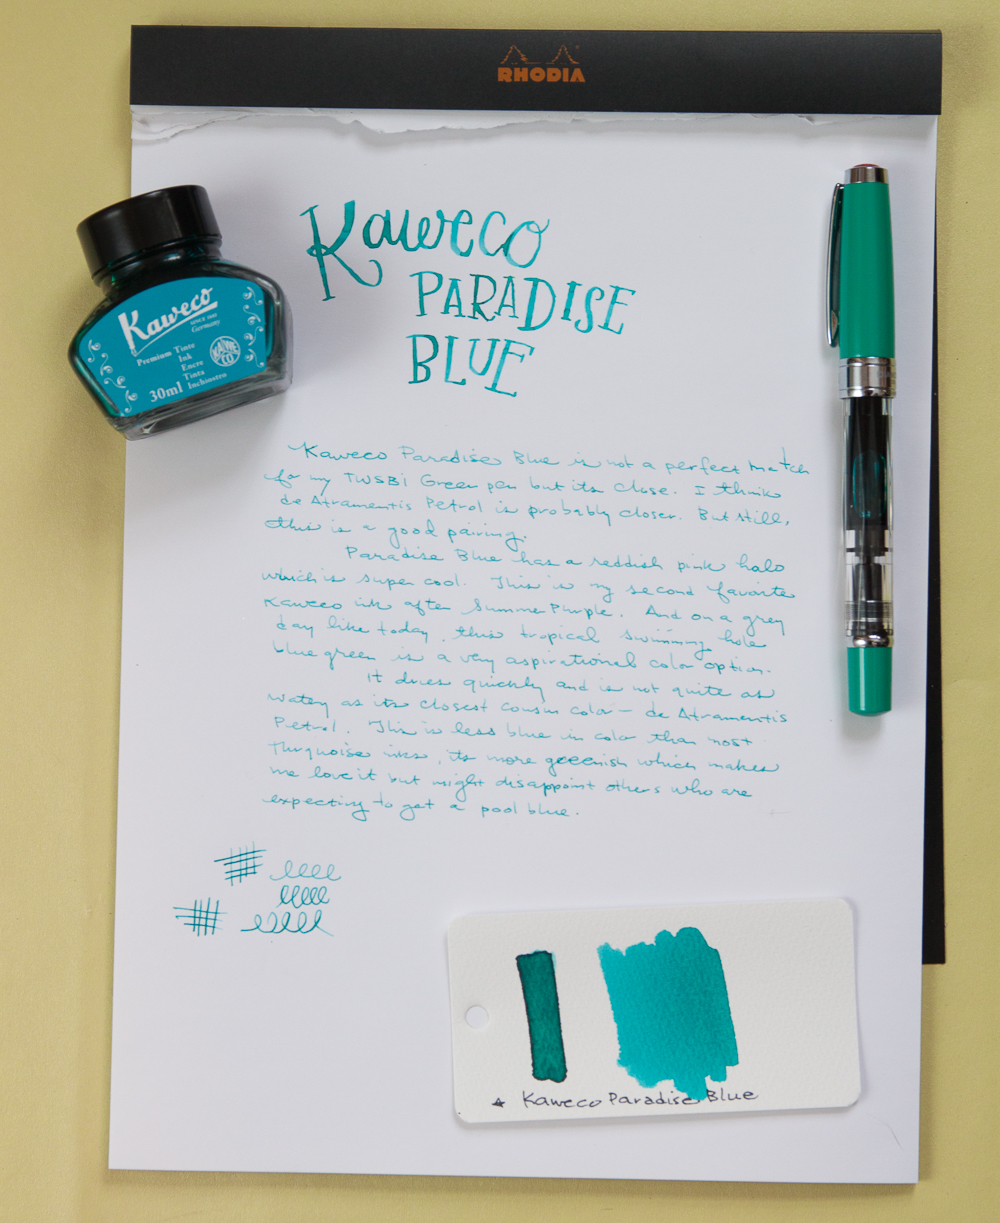 RHODIA
Kaweco
since 1883
Germany
Premium Tinte
Ink
Encre
Tinta
Inchiostro
30ml
KAWE
CO
Kaweco
PARADISE
BLUE
Kaweco Paradise Blue is not a perfect match
for my TWSBI Green pen but its close. I think
de Atramentis Petrol is probably closer. But still,
this is a good pairing.
Paradise Blue has a reddish pink halo
which is super cool. This is my second favorite
Kaweco ink after Summer Purple. And on a grey
day like today, this tropical swimming hole
blue green is a very aspirational color option.
It dries quickly and is not quite as
watery as its closest cousin color — de Atramentis
Petrol. This is less blue in color than most
Turquoise inks, its more greeenish which makes
me love it but might disappoint others who are
expecting to get a pool blue.
Kaweco Paradise Blue